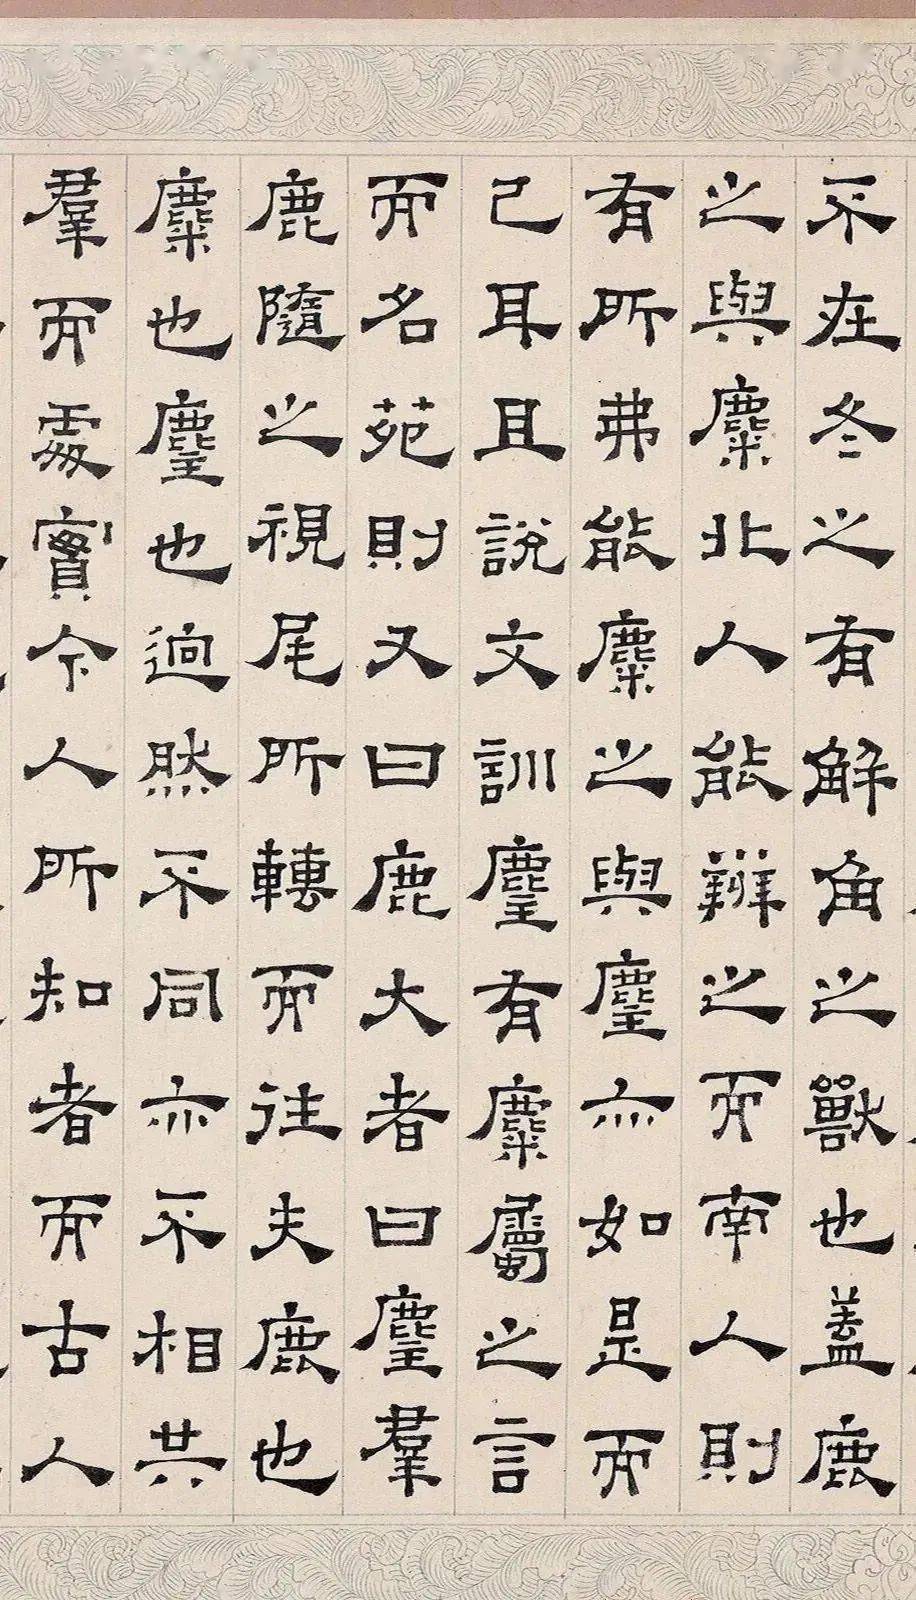 不在冬之有解角之獸也蓋鹿
之與麋北人能辨之而南人則
有所弗能麋之與麈亦如是而
已耳且說文訓麈有麋屬之言
而名苑則又曰鹿大者曰麈羣
鹿隨之視尾所轉而往夫鹿也
麋也麈也迥然不同亦不相共
羣而處實今人所知者而古人